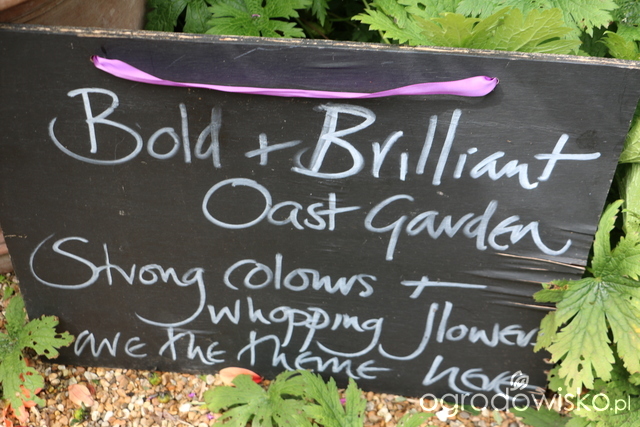 Bold + Brilliant
Oast Garden
Strong colours +
whopping flowers
are the theme here
ogrodowisko.pl